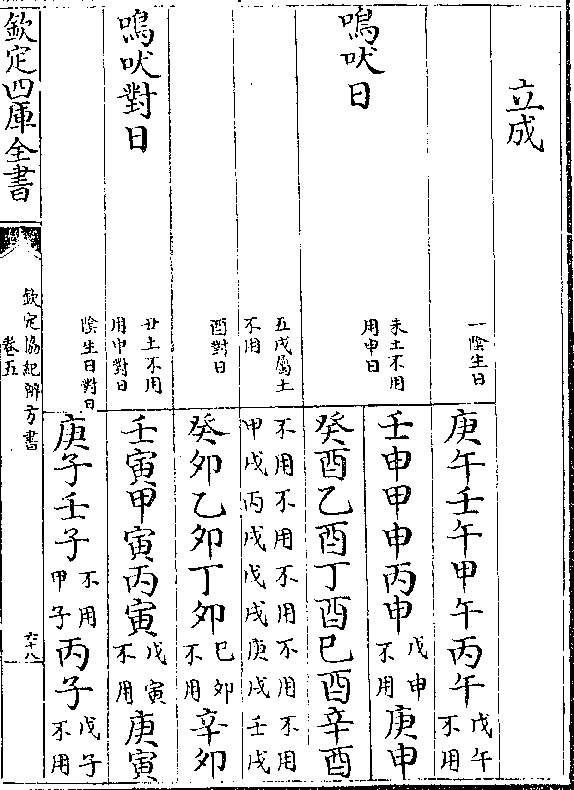 立成
一陰生日
庚午壬午甲午丙午戊午不用
鳴吠日
未土不用
用申日
壬申甲申丙申戊申不用庚申
癸酉乙酉丁酉巳酉辛酉
五戌屬土
不用
不用不用不用不用不用
甲戌丙戌戊戌庚戌壬戌
酉對日
癸卯乙卯丁卯巳卯不用辛卯
鳴吠對日
丑土不用
用申對日
壬寅甲寅丙寅戊寅不用庚寅
陰生日對日
庚子壬子不用甲子丙子戊子不用
欽定四庫全書
欽定協紀辨方書
卷五
六十八